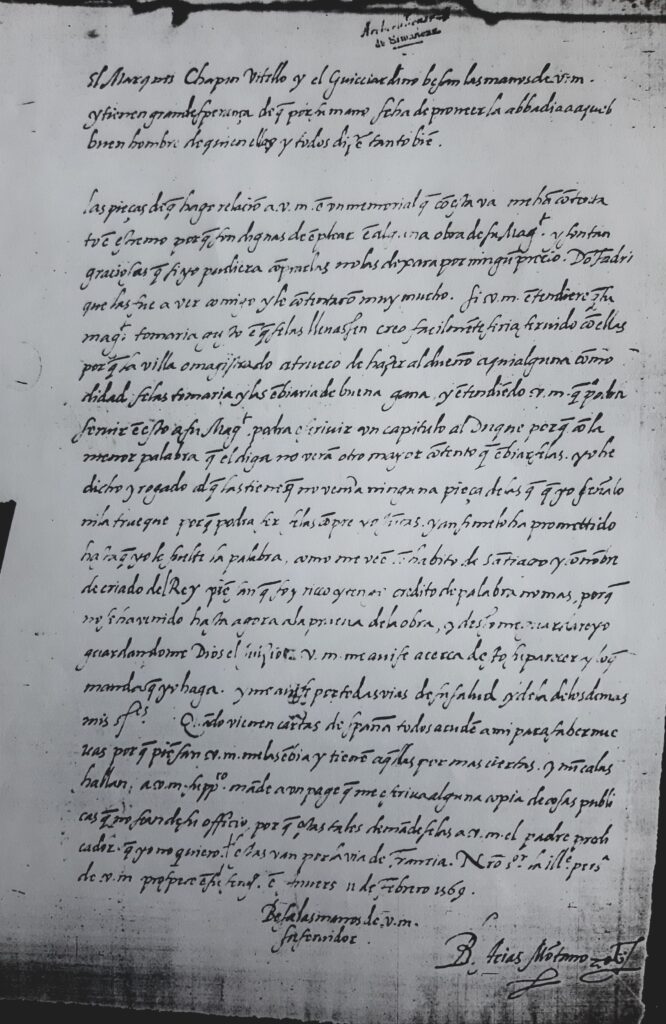 de Simancas
El Marques Chapin Vitello y el Guicciardino besan las manos de v.m.
y tienen grande sperança de q̃ por su mano se ha de proueer la abbadia a aquel
buen hombre de quien ellos y todos dizẽ tanto biẽ.
las pieças de q̃ hago relaciõ a v.m. ẽ vn memorial q̃ cõ esta va me hã cõtẽta
to ẽ estremo porq̃ son dignas de ẽplear ẽ alguna obra de su Mag.t y son tan
graciosas q̃ si yo pudiera cõprarlas no las dexara por ningũ precio. Dõ Fadri
que las fue a ver comigo y le cõtentarõ muy mucho. Si v.m. ẽtendiere q̃ su
mag.t tomaria gusto ẽ q̃ se las lleuassen creo facilmẽte seria seruido cõ ellas
porq̃ la villa o magistrado a trueco de hazer al dueño aqui alguna como
didad se las tomaria y las ẽbiaria de buena gana. y ẽtendiẽdo v.m. q̃ podra
seruir ẽ esto a su Mag.t podra escriuir vn capitulo al Duque porq̃ cõ la
menor palabra q̃ el diga no verã otro mayor cõtento q̃ ẽbiarselas. yo he
dicho y rogado al q̃ las tiene q̃ no venda ninguna pieça de las q̃ yo señalo
ni la trueque porq̃ podra ser se las cõpre yo y ansi me lo ha promettido
hasta q̃ yo le suelte la palabra, como me veẽ habito de Santiago y nõbre
de criado del Rey piẽsan q̃ soy rico y tengo credito de palabra no mas, porq̃
no se ha venido hasta agora a la prueua de la obra, y
guardandome Dios el v.m. me auise acerca desto su parecer y lo q̃
manda q̃ yo haga. y me de su salud y de la de los demas
mis s.res Quãdo vienen cartas de España todos acudẽ a mi para saber nue
uas porq̃ piẽsan v.m. me las ẽbia y tienẽ aq̃llas por mas ciertas. y nũca las
hallan, a v.m. supp.co mãde a vn page q̃ me escriua alguna copia de cosas publi
cas q̃ no sean de su officio, porq̃ estas tales demãdeselas a v.m. el padre predi
cador q̃ yo no quiero. Estas van por la via de Francia. Nro s.or la ill.e pers.a
de v.m. prospere ẽ Anvers 11 de Febrero 1569.
Besa las manos de v.m.
su seruidor
B. Arias Mõtano